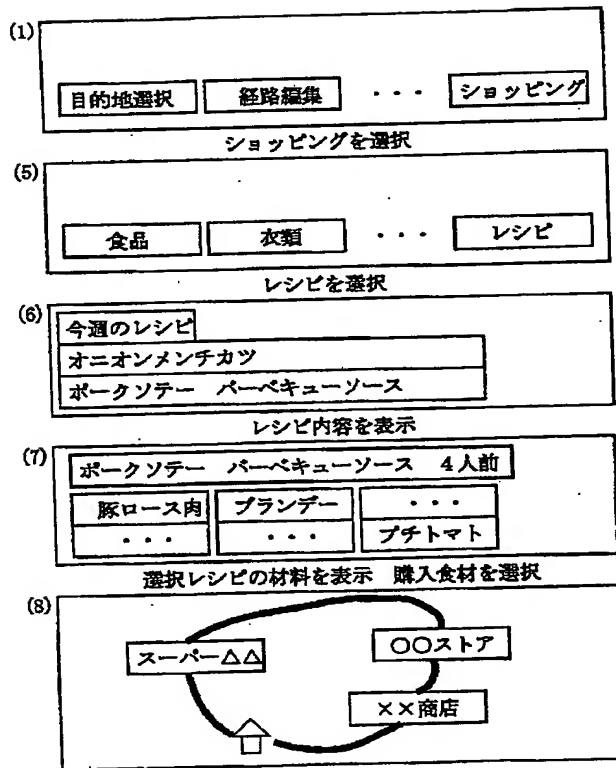 (1)
目的地選択 経路編集 ・・・ ショッピング
ショッピングを選択
(5)
食品 衣類 ・・・ レシピ
レシピを選択
(6)
今週のレシピ
オニオンメンチカツ
ポークソテー バーベキューソース
レシピ内容を表示
(7)
ポークソテー バーベキューソース 4人前
豚ロース肉 ブランデー ・・・
・・・ ・・・ プチトマト
選択レシピの材料を表示 購入食材を選択
(8)
スーパー△△ ○○ストア
××商店